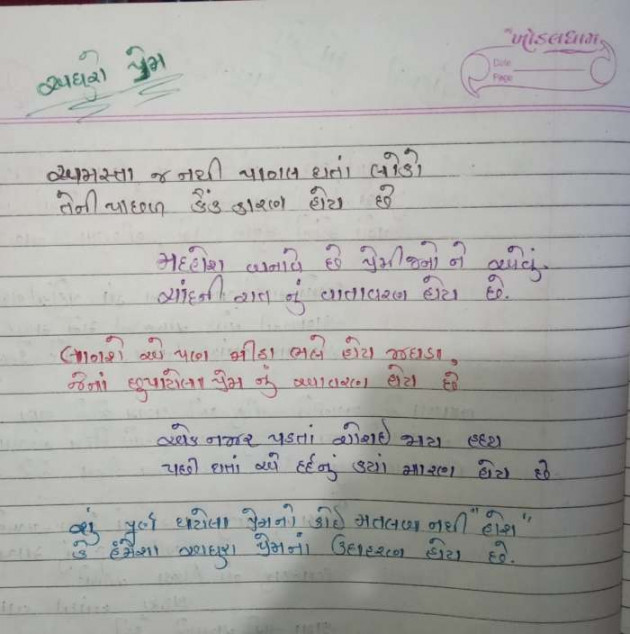 ખોડલધામ
Date
Page
અધુરો પ્રેમ
અમસ્તા જ નથી પાગલ થતાં લોકો
તેની પાછળ કૈંક કારણ હોય છે
મદહોશ બનાવે છે પ્રેમીજનો ને એવું.
ચાંદની રાત નું વાતાવરણ હોય છે.
લાગશે એ પણ મીઠા ભલે હોય જઘડા,
જેનાં છુપાયેલા પ્રેમ નું આવરણ હોય છે
એક નજર પડતાં ચોરાઈ જાય હૃદય
પછી થતાં એ દર્દનું ક્યાં મારણ હોય છે
શું પૂર્ણ થયેલા પ્રેમનો કોઈ મતલબ નથી "હોશ"
કે હંમેશા અધુરા પ્રેમનાં ઉદાહરણ હોય છે.